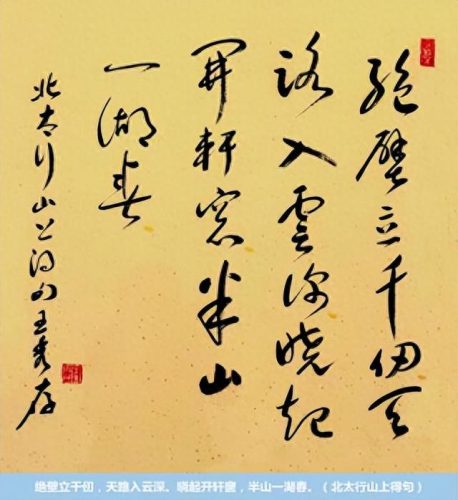 絶壁立千仞天
路入雲深晓起
開軒窓半山
一湖春
北太行山上得句王秀存
绝壁立千仞，天路入云深。晓起开轩窗，半山一湖春。（北太行山上得句）